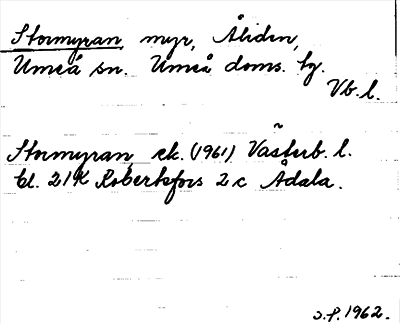 Stormyran, myr, Åliden,
Umeå sn. Umeå doms. hg.
Vb. l.
Stormyran, ek. (1961) Västerb. l.
bl. 21K Robertsfors 2 c Ådala.
s.f. 1962.